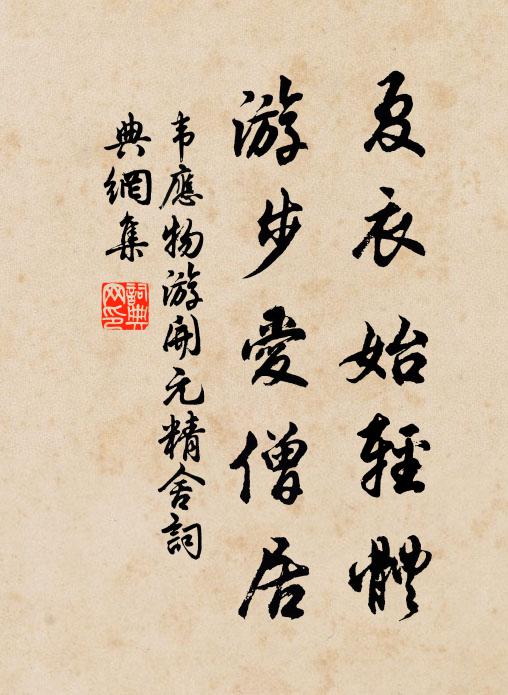 夏衣始輕體
游步愛僧居
韦應物游開元精舍詞
典網集
詞典網印